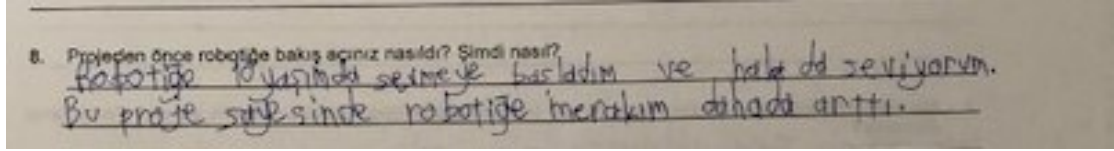 8. Projeden önce robotiğe bakış açınız nasıldı? Şimdi nasıl?
Robotiğe 10 yaşımda sevmeye basladım ve hala da seviyorum.
Bu proje sayesinde robotiğe merakım dahada arttı.